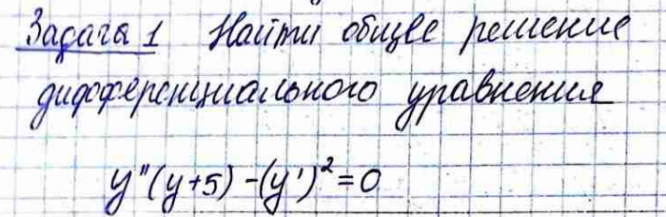 Задача 1 Найти общее решение
дифференциального уравнения
y"(y+5)-(y')²=0